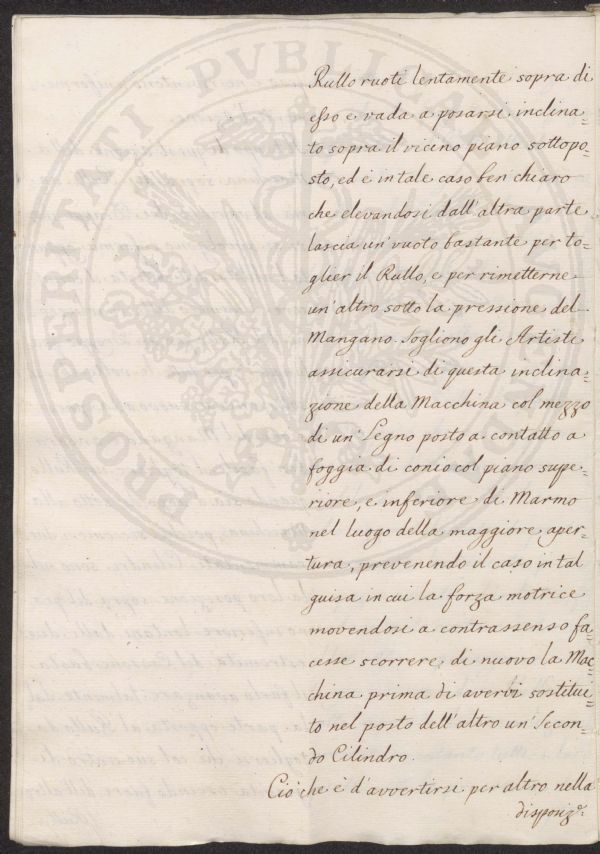 Rullo ruoti lentamente sopra di
esso e vada a posarsi inclina=
to sopra il vicino piano sottopo=
sto, ed è in tale caso ben chiaro
che elevandosi dall'altra parte
lascia un'vuoto bastante per to=
glier il Rullo, e per rimetterne
un'altro sotto la pressione del
Mangano. Sogliono gli Artisti
assicurarsi di questa inclina=
zione della Macchina col mezzo
di un'Legno posto a contatto a
foggia di conio col piano supe=
riore, e inferiore di Marmo
nel luogo della maggiore aper=
tura, prevenendo il caso in tal
guisa in cui la forza motrice
movendosi a contrassenso fa=
cesse scorrere di nuovo la Mac=
china prima di avervi sostitui=
to nel posto dell'altro un'Secon=
do Cilindro.
Ciò che è d'avvertirsi per altro nella
disposiz.e
PROSPERITATI PUBLICAE